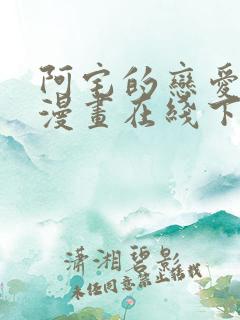 阿宅的戀愛
漫畫在綫下
瀟湘碧影
未经同意禁止转载